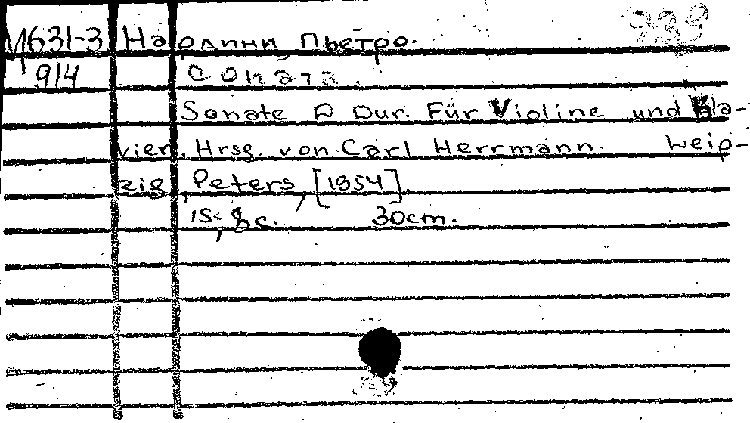 М631-3 Нардини Пьетро.
914 Соната.
Sonate D Dur. Für Violine und Kla-
vier. Hrsg. von Carl Herrmann. Leip-
zig, Peters, [1954]
15, 8 с. 30cm.